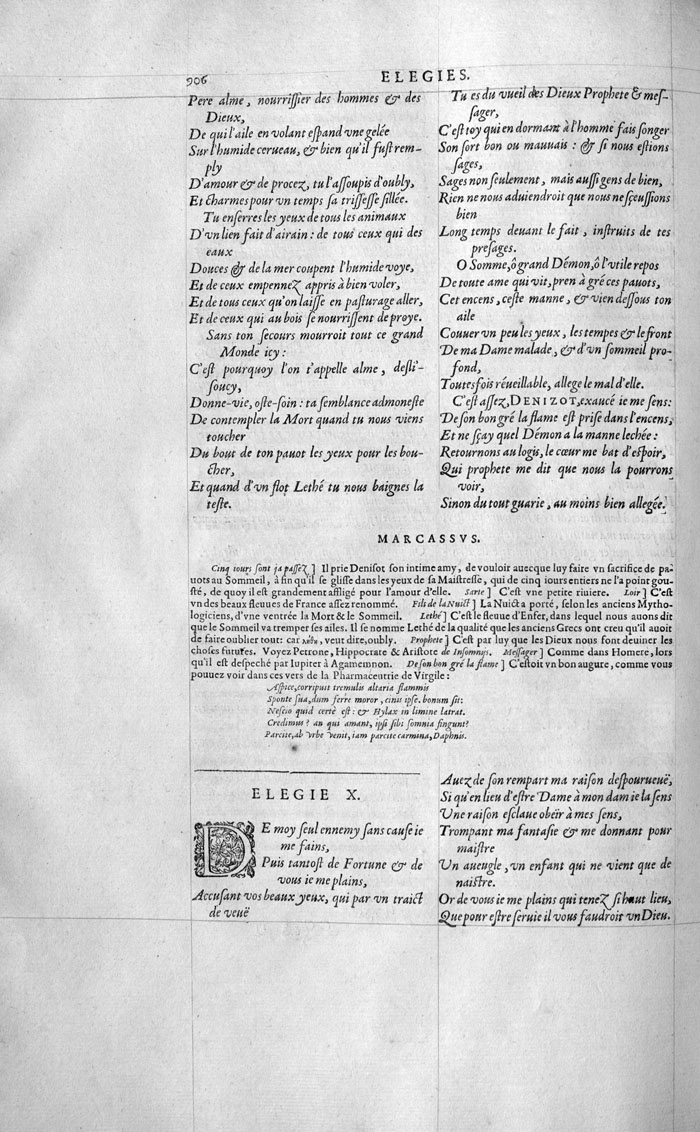 906
ELEGIES.
Pere alme, nourrissier des hommes & des
Dieux,
De qui l'aile en volant espand vne gelée
Sur l'humide cerueau, & bien qu'il fust rem-
ply
D'amour & de procez, tu l'assoupis d'oubly,
Et charmes pour vn temps sa tristesse sillée.
Tu enserres les yeux de tous les animaux
D'vn lien fait d'airain : de tous ceux qui des
eaux
Douces & de la mer coupent l'humide voye,
Et de ceux empennez appris à bien voler,
Et de tous ceux qu'on laisse en pasturage aller,
Et de ceux qui au bois se nourrissent de proye.
Sans ton secours mourroit tout ce grand
Monde icy :
C'est pourquoy l'on t'appelle alme, desli'-
soucy,
Donne-vie, oste-soin : ta semblance admoneste
De contempler la Mort quand tu nous viens
toucher
Du bout de ton pauot les yeux pour les bou-
cher,
Et quand d'vn flot Lethé tu nous baignes la
teste.
Tu es du vueil des Dieux Prophete & mes-
sager,
C'est toy qui en dormant à l'homme fais songer
Son sort bon ou mauuais : & si nous estions
sages,
Sages non seulement, mais aussi gens de bien,
Rien ne nous aduiendroit que nous ne sceussions
bien
Long temps deuant le fait, instruits de tes
presages.
O Somme, ô grand Démon, ô l'vtile repos
De toute ame qui vit, pren à gré ces pauots,
Cet encens, ceste manne, & vien dessous ton
aile
Couuer vn peu les yeux, les tempes & le front
De ma Dame malade, & d'vn sommeil pro-
fond,
Toutesfois réueillable, allege le mal d'elle.
C'est assez, DENIZOT, exaucé ie me sens:
De son bon gré la flame est prise dans l'encens,
Et ne sçay quel Démon a la manne lechée :
Retournons au logis, le cœur me bat d'espoir,
Qui prophete me dit que nous la pourrons
voir,
Sinon du tout guarie, au moins bien allegée.
MARCASSVS.
Cinq iours sont ja passez ] Il prie Denisot son intime amy, de vouloir auecque luy faire vn sacrifice de pa-
uots au Sommeil, à fin qu'il se glisse dans les yeux de sa Maistresse, qui de cinq iours entiers ne l'a point gou-
sté, de quoy il est grandement affligé pour l'amour d'elle. Sarte ] C'est vne petite riuiere. Loir ] C'est
vn des beaux fleuues de France assez renommé. Fils de la Nuict ] La Nuict a porté, selon les anciens Mytho-
logiciens, d'vne ventrée la Mort & le Sommeil. Lethé ] C'est le fleuue d'Enfer, dans lequel nous auons dit
que le Sommeil va tremper ses ailes. Il se nomme Lethé de la qualité que les anciens Grecs ont creu qu'il auoit
de faire oublier tout: car λήθη, veut dire, oubly. Prophete ] C'est par luy que les Dieux nous font deuiner les
choses futures. Voyez Petrone, Hippocrate & Aristote de Insomnijs. Messager ] Comme dans Homere, lors
qu'il est despeché par Iupiter à Agamemnon. De son bon gré la flame ] C'estoit vn bon augure, comme vous
pouuez voir dans ces vers de la Pharmaceutrie de Virgile :
Aspice, corripuit tremulis altaria flammis
Sponte sua, dum ferre moror, cinis ipse. bonum sit:
Nescio quid certè est : & Hylax in limine latrat.
Credimus ? an qui amant, ipsi sibi somnia fingunt?
Parcite, ab Vrbe venit, iam parcite carmina, Daphnis.
ELEGIE X.
DE moy seul ennemy sans cause ie
me fains,
Puis tantost de Fortune & de
vous ie me plains,
Accusant vos beaux yeux, qui par vn traict
de veuë
Auez de son rempart ma raison despourueuë,
Si qu'en lieu d'estre Dame à mon dam ie la sens
Vne raison esclaue obeïr à mes sens,
Trompant ma fantasie & me donnant pour
maistre
Vn aueugle, vn enfant qui ne vient que de
naistre.
Or de vous ie me plains qui tenez si haut lieu,
Que pour estre seruie il vous faudroit vn Dieu.